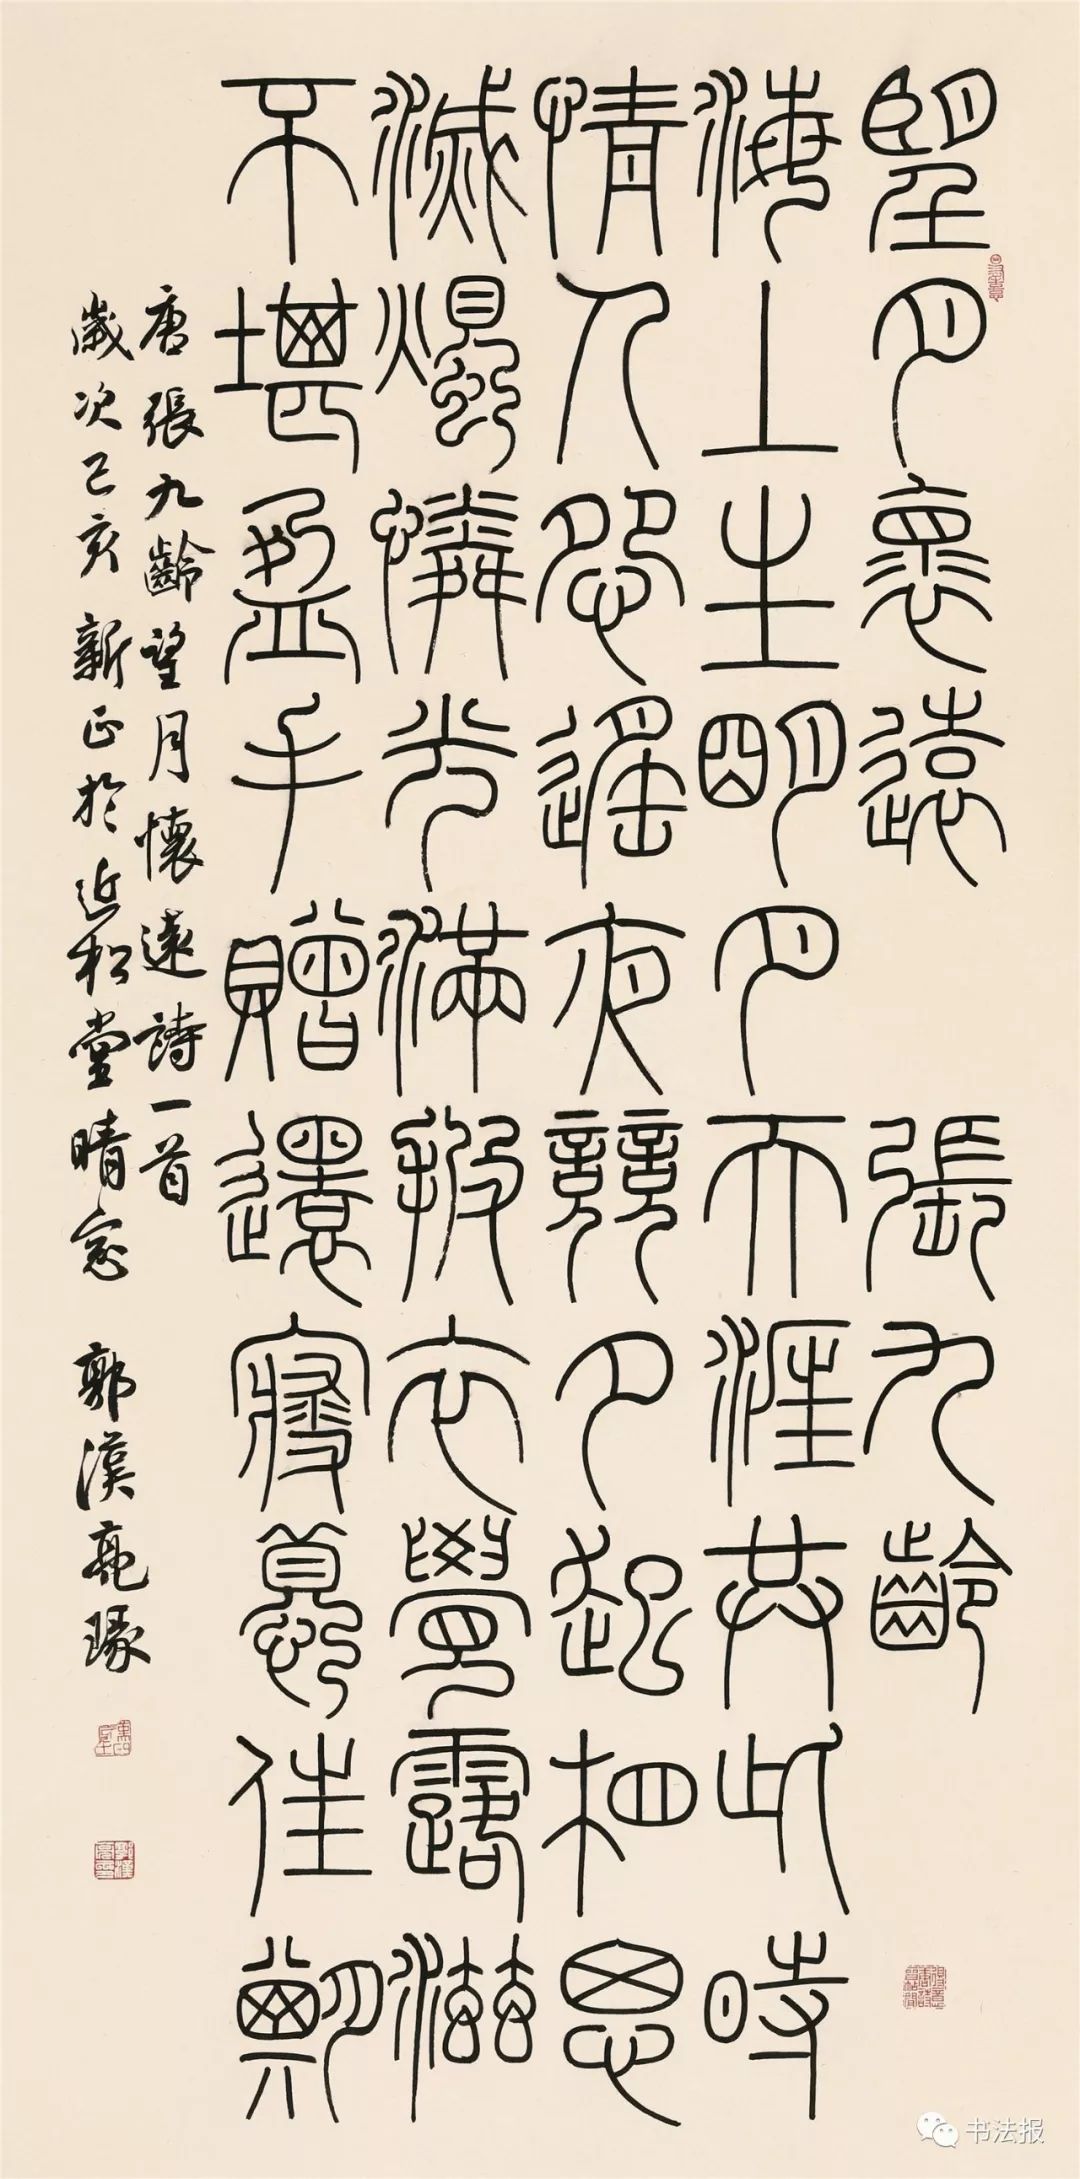 望月懷遠 張九齡
海上生明月天涯共此時
情人怨遙夜竟夕起相思
滅燭憐光滿披衣覺露滋
不堪盈手贈還寢夢佳期
唐張九齡望月懷遠詩一首
歲次己亥新正於近松堂晴窓 郭漢亮瑑
书法报